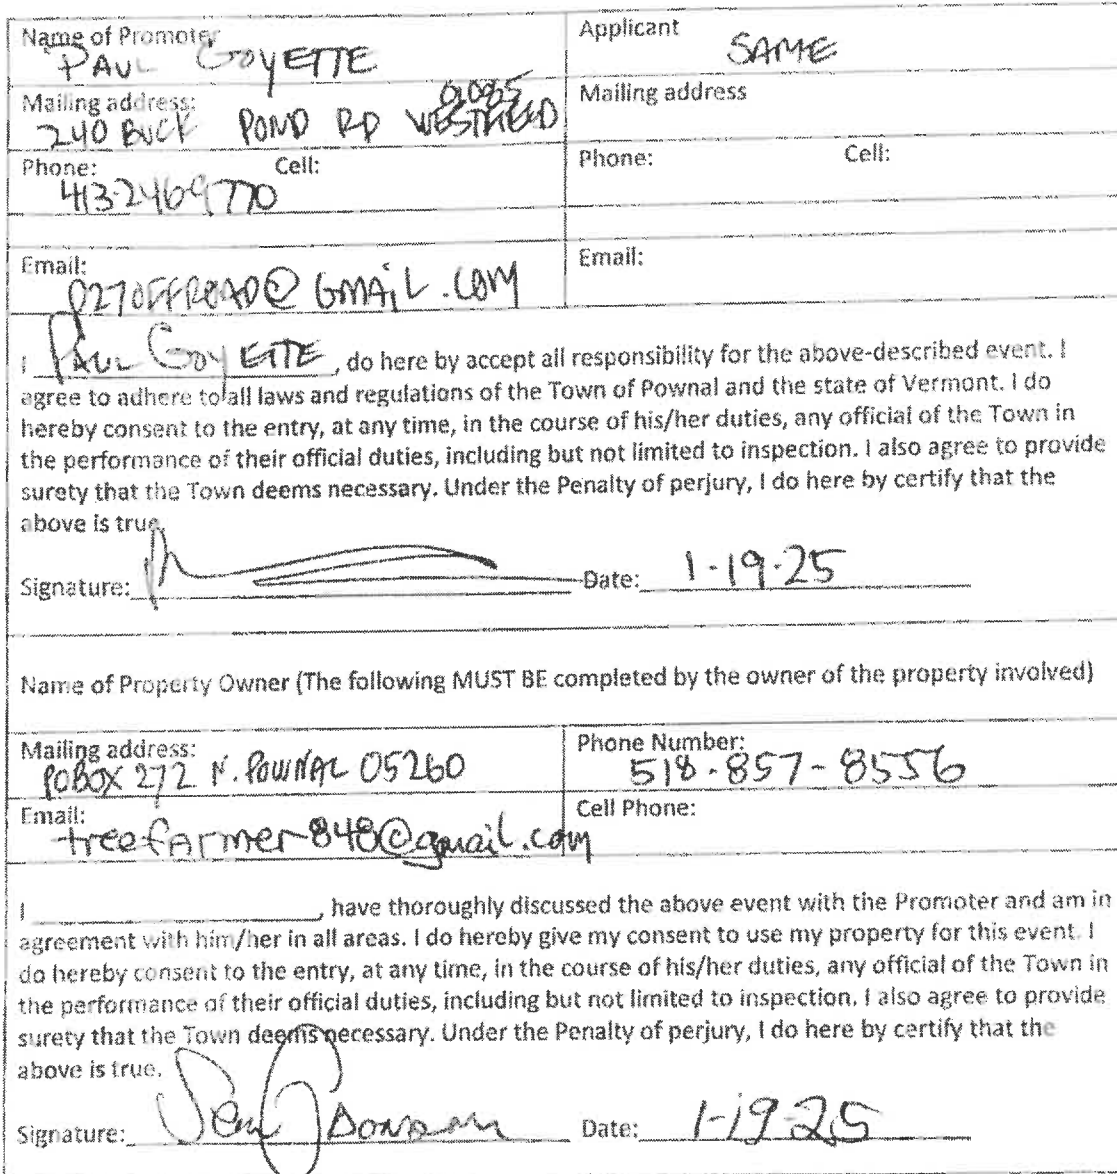 Name of Promoter
Applicant
PAUL GOYETTE
SAME
Mailing address:
01085
Mailing address
240 BUCK POND RD WESTFIELD
Phone: Cell:
Phone: Cell:
413-2469770
Email:
Email:
027OFFROAD@GMAIL.COM
I PAUL GOYETTE, do here by accept all responsibility for the above-described event. I
agree to adhere to all laws and regulations of the Town of Pownal and the state of Vermont. I do
hereby consent to the entry, at any time, in the course of his/her duties, any official of the Town in
the performance of their official duties, including but not limited to inspection. I also agree to provide
surety that the Town deems necessary. Under the Penalty of perjury, I do here by certify that the
above is true.
Signature: Date: 1-19-25
Name of Property Owner (The following MUST BE completed by the owner of the property involved)
Mailing address:
Phone Number:
POBOX 272 N. POWNAL 05260
518-857-8556
Email:
Cell Phone:
treefarmer848@gmail.com
I ____________________, have thoroughly discussed the above event with the Promoter and am in
agreement with him/her in all areas. I do hereby give my consent to use my property for this event. I
do hereby consent to the entry, at any time, in the course of his/her duties, any official of the Town in
the performance of their official duties, including but not limited to inspection. I also agree to provide
surety that the Town deems necessary. Under the Penalty of perjury, I do here by certify that the
above is true.
Signature: Date: 1-19-25